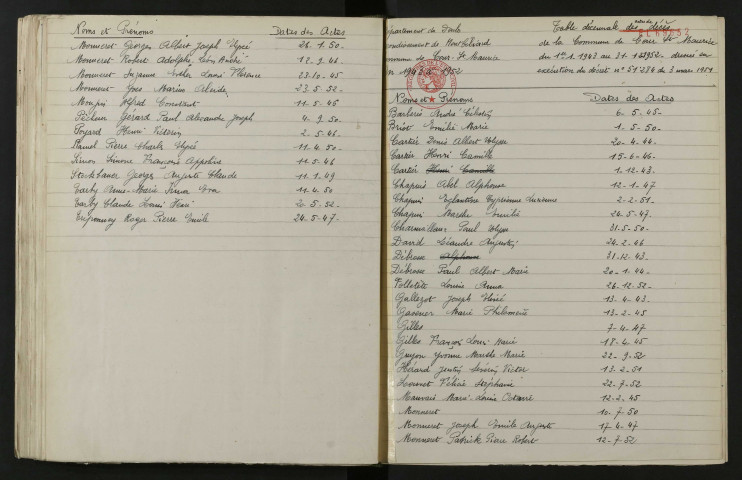 Noms et Prénoms Dates des Actes
Monneret Georges Albert Joseph 26.1.50-
Monneret Robert Adolphe Léon André 12.9.46-
Monneret Suzanne Louise Florence 23.10-45
Monneret Yves Marius 23.5.52-
Alfred Constant 11-5-46
Pécheur Gérard Paul Alexandre Joseph 4-9.50-
Henri 2-5-46-
Pierre Charles 11-4.50-
Simon Simone Françoise Appoline 11-5-46
Georges Auguste Claude 11-1.49
Tarby Anne-Marie 11-4.50
Tarby Claude Louis Henri 2-5-52-
Roger Pierre Emile 24.5-47-
Département de Doubs
Arrondissement de Montbéliard
Commune de Cour-St-Maurice
1943 à 1952
Table décennale des décès
de la Commune de Cour St Maurice
du 1er 1.1943 au 31.12.1952- dressée en
exécution du décret n° 51.284 du 3 mars 1951
Noms et Prénoms Dates des Actes
André 6-5.45-
Briot Emilie Marie 1-5-50-
Cartier Denis Albert Ulysse 20-4.44-
Cartier Henri Camille 15-6-46-
Cartier Henri Camille 1-12.43-
Chapuis Abel Alphonse 12-1.47
Eglantine 2-2-51-
Marthe Emilie 24.5-47-
Paul Ulysse 31.5-50-
David Léandre 24.2-46
Débrosse Alphonse 31-12-43
Débrosse Paul Albert Marie 20-1.44-
Folletête Louise Anna 26-12.52-
Gallezot Joseph 13-4-43-
Marie Philomène 13-2-45
Gilles 7-4-47
Gilles François Louis Marié 18-4.45
Guyon Yvonne Marthe Marie 22-9.52
Hérard Séverin Victor 13-2-51
Félicie Stéphanie 22.7.52
Mauvais Marie Louise 12-2.45
Monneret 10.7-50
Monneret Joseph Emile Auguste 17-4-47
Monneret Patrick Pierre Robert 12-7-52